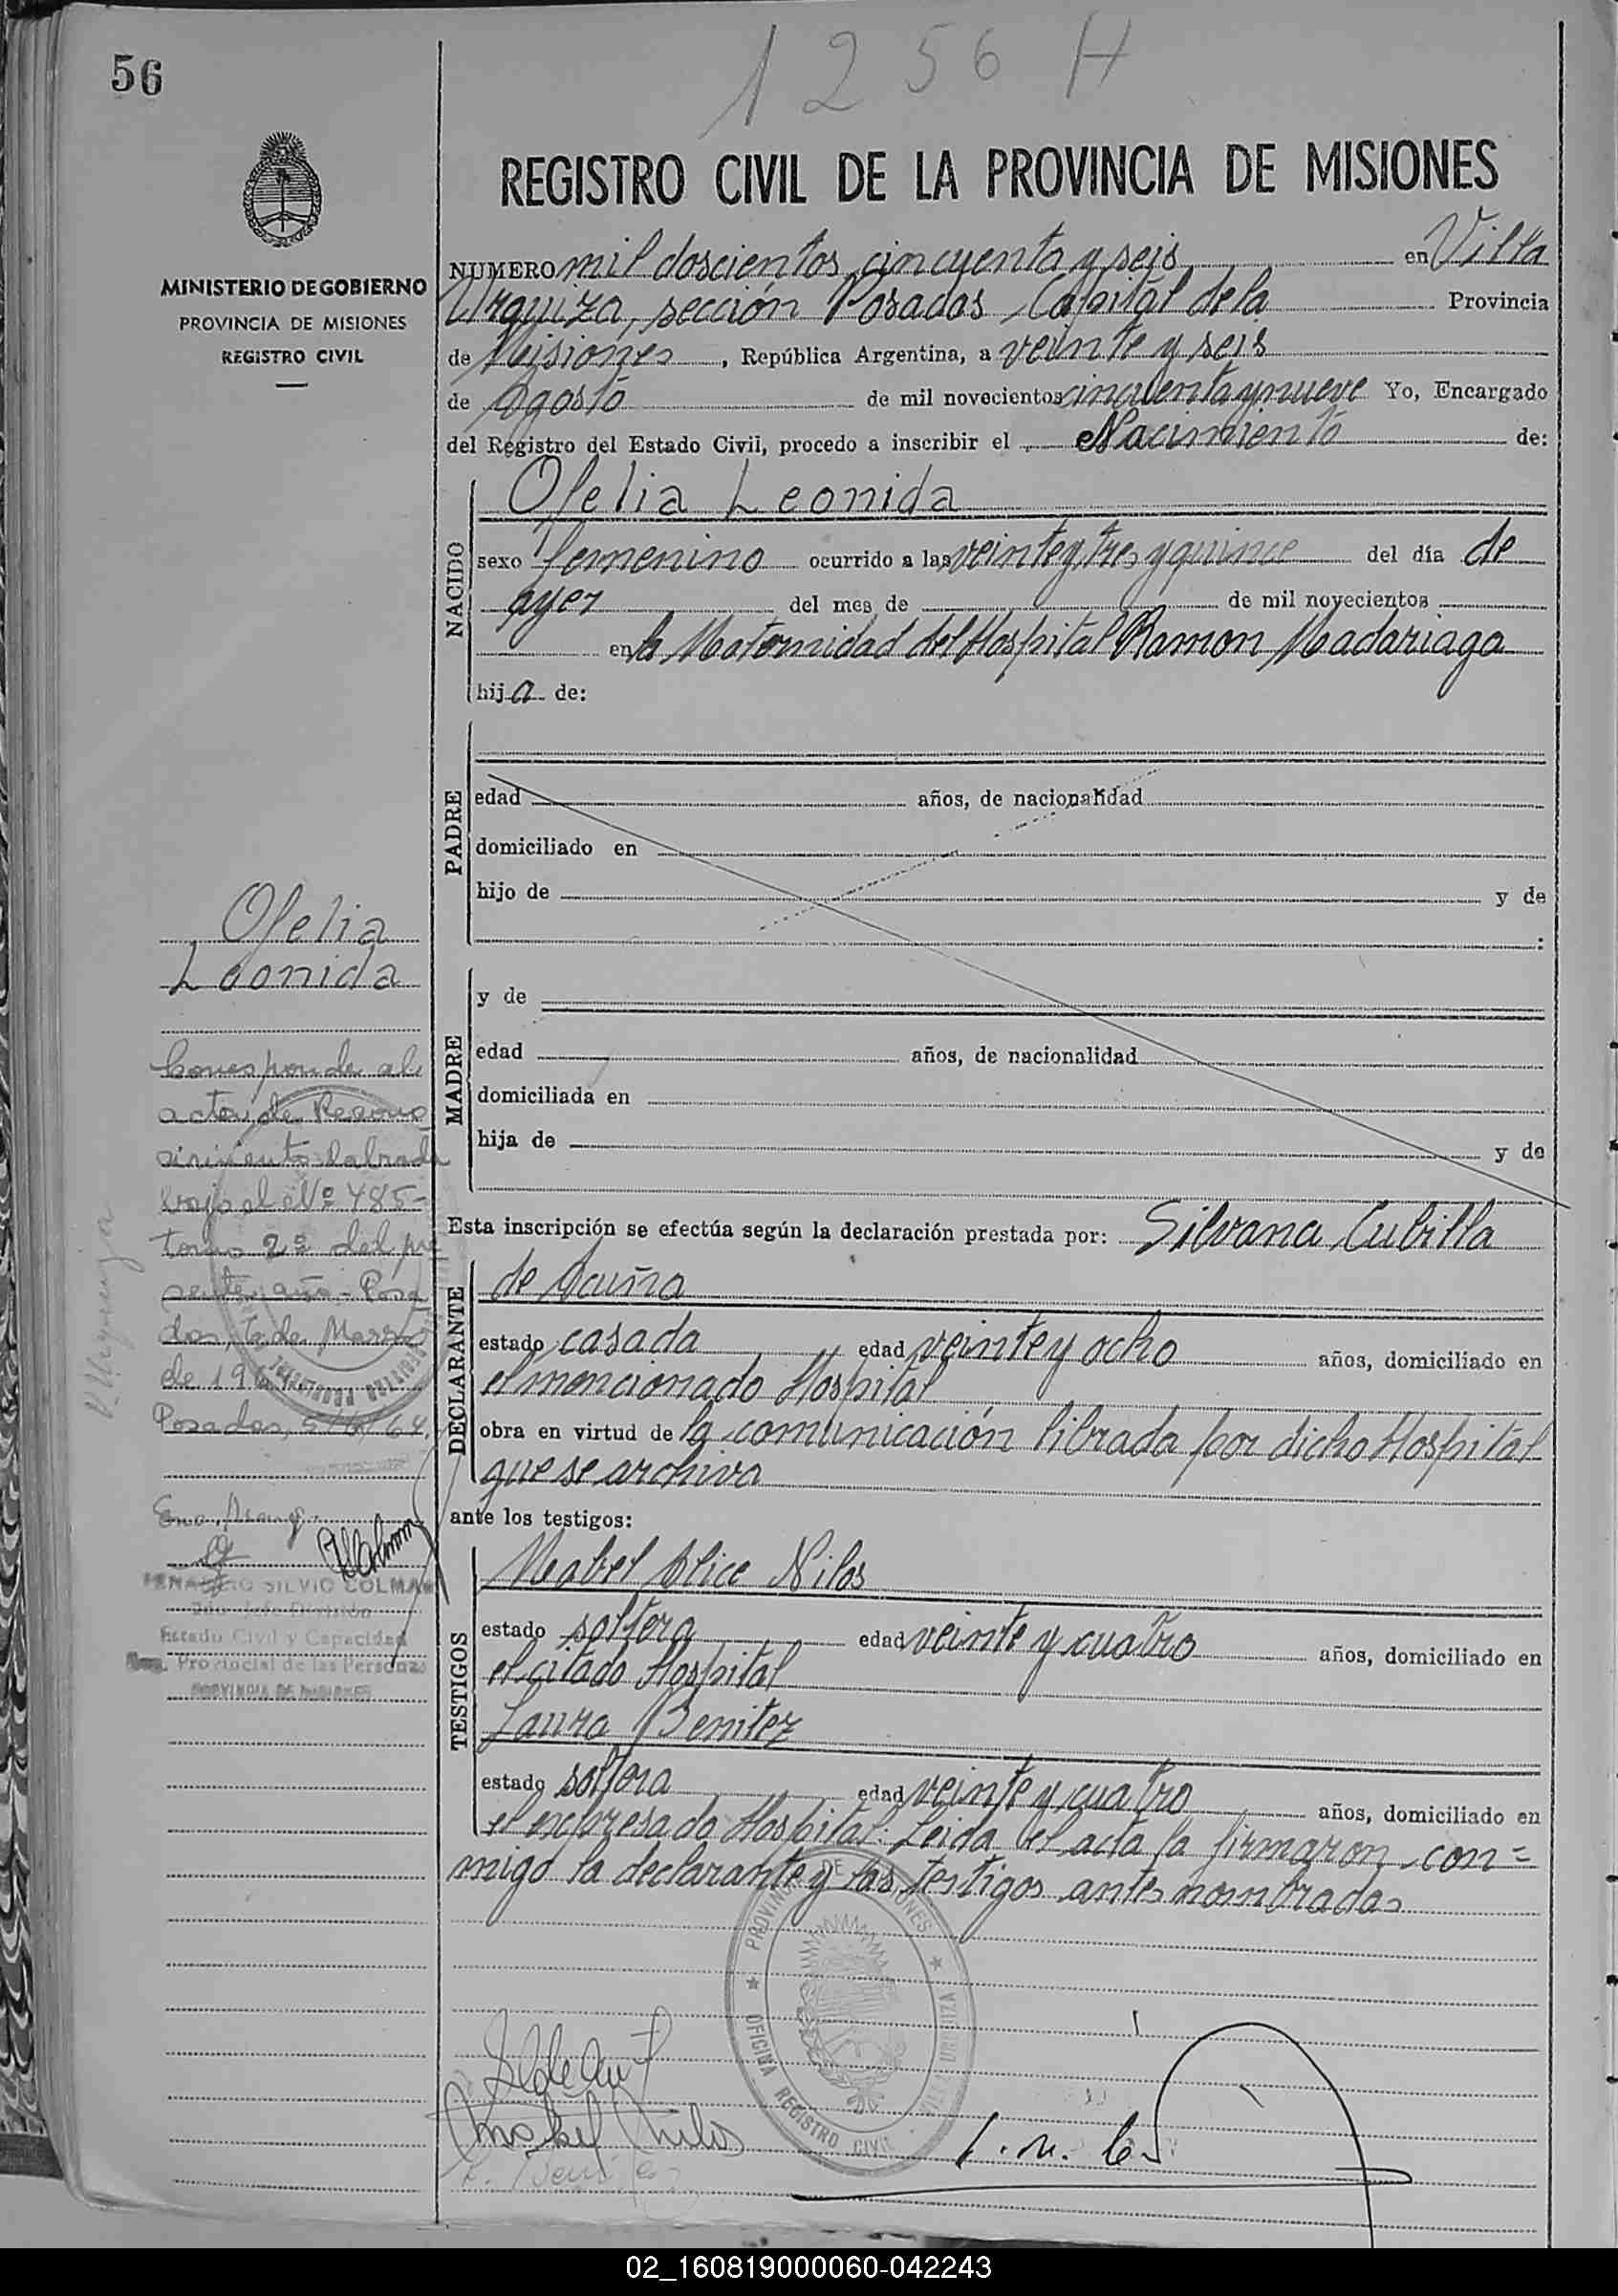 56
1256 H
MINISTERIO DE GOBIERNO
PROVINCIA DE MISIONES
REGISTRO CIVIL
REGISTRO CIVIL DE LA PROVINCIA DE MISIONES
NUMERO mil doscientos cincuenta y seis en Villa
Urquiza, sección Posadas, Capital de la Provincia
de Misiones, República Argentina, a veinte y seis
de Agosto de mil novecientos cincuenta y nueve Yo, Encargado
del Registro del Estado Civil, procedo a inscribir el Nacimiento de:
NACIDO
Ofelia Leonida
sexo femenino ocurrido a las veinte y tres y quince del día de
ayer del mes de de mil novecientos
en la Maternidad del Hospital Ramon Madariaga
hija de:
PADRE
edad años, de nacionalidad
domiciliado en
hijo de y de
:
MADRE
y de
edad años, de nacionalidad
domiciliada en
hija de y de
Esta inscripción se efectúa según la declaración prestada por: Silvana Cubilla
DECLARANTE
de Acuña
estado casada edad veinte y ocho años, domiciliado en
el mencionado Hospital
obra en virtud de la comunicación librada por dicho Hospital
que se archiva
ante los testigos:
TESTIGOS
Mabel Alice Nilos
estado soltera edad veinte y cuatro años, domiciliado en
el citado Hospital
Laura Benitez
estado soltera edad veinte y cuatro años, domiciliado en
el expresado Hospital: Leida el acta la firmaron con=
migo la declarante y las testigos antes nombradas
Ofelia
Leonida
Corresponde al
acta de Recono
cimiento labrada
bajo el Nº 485-
tomo 2º del pre
sente año - Posa
das, de Marzo
de 196
Posadas, 5/ /64.
SILVIO COLMAN
Jefe División
Estado Civil y Capacidad
Provincial de las Personas
PROVINCIA DE MISIONES
PROVINCIA DE MISIONES
OFICINA REGISTRO CIVIL
VILLA URQUIZA
Mabel Nilos
L. Benitez
02_160819000060-042243